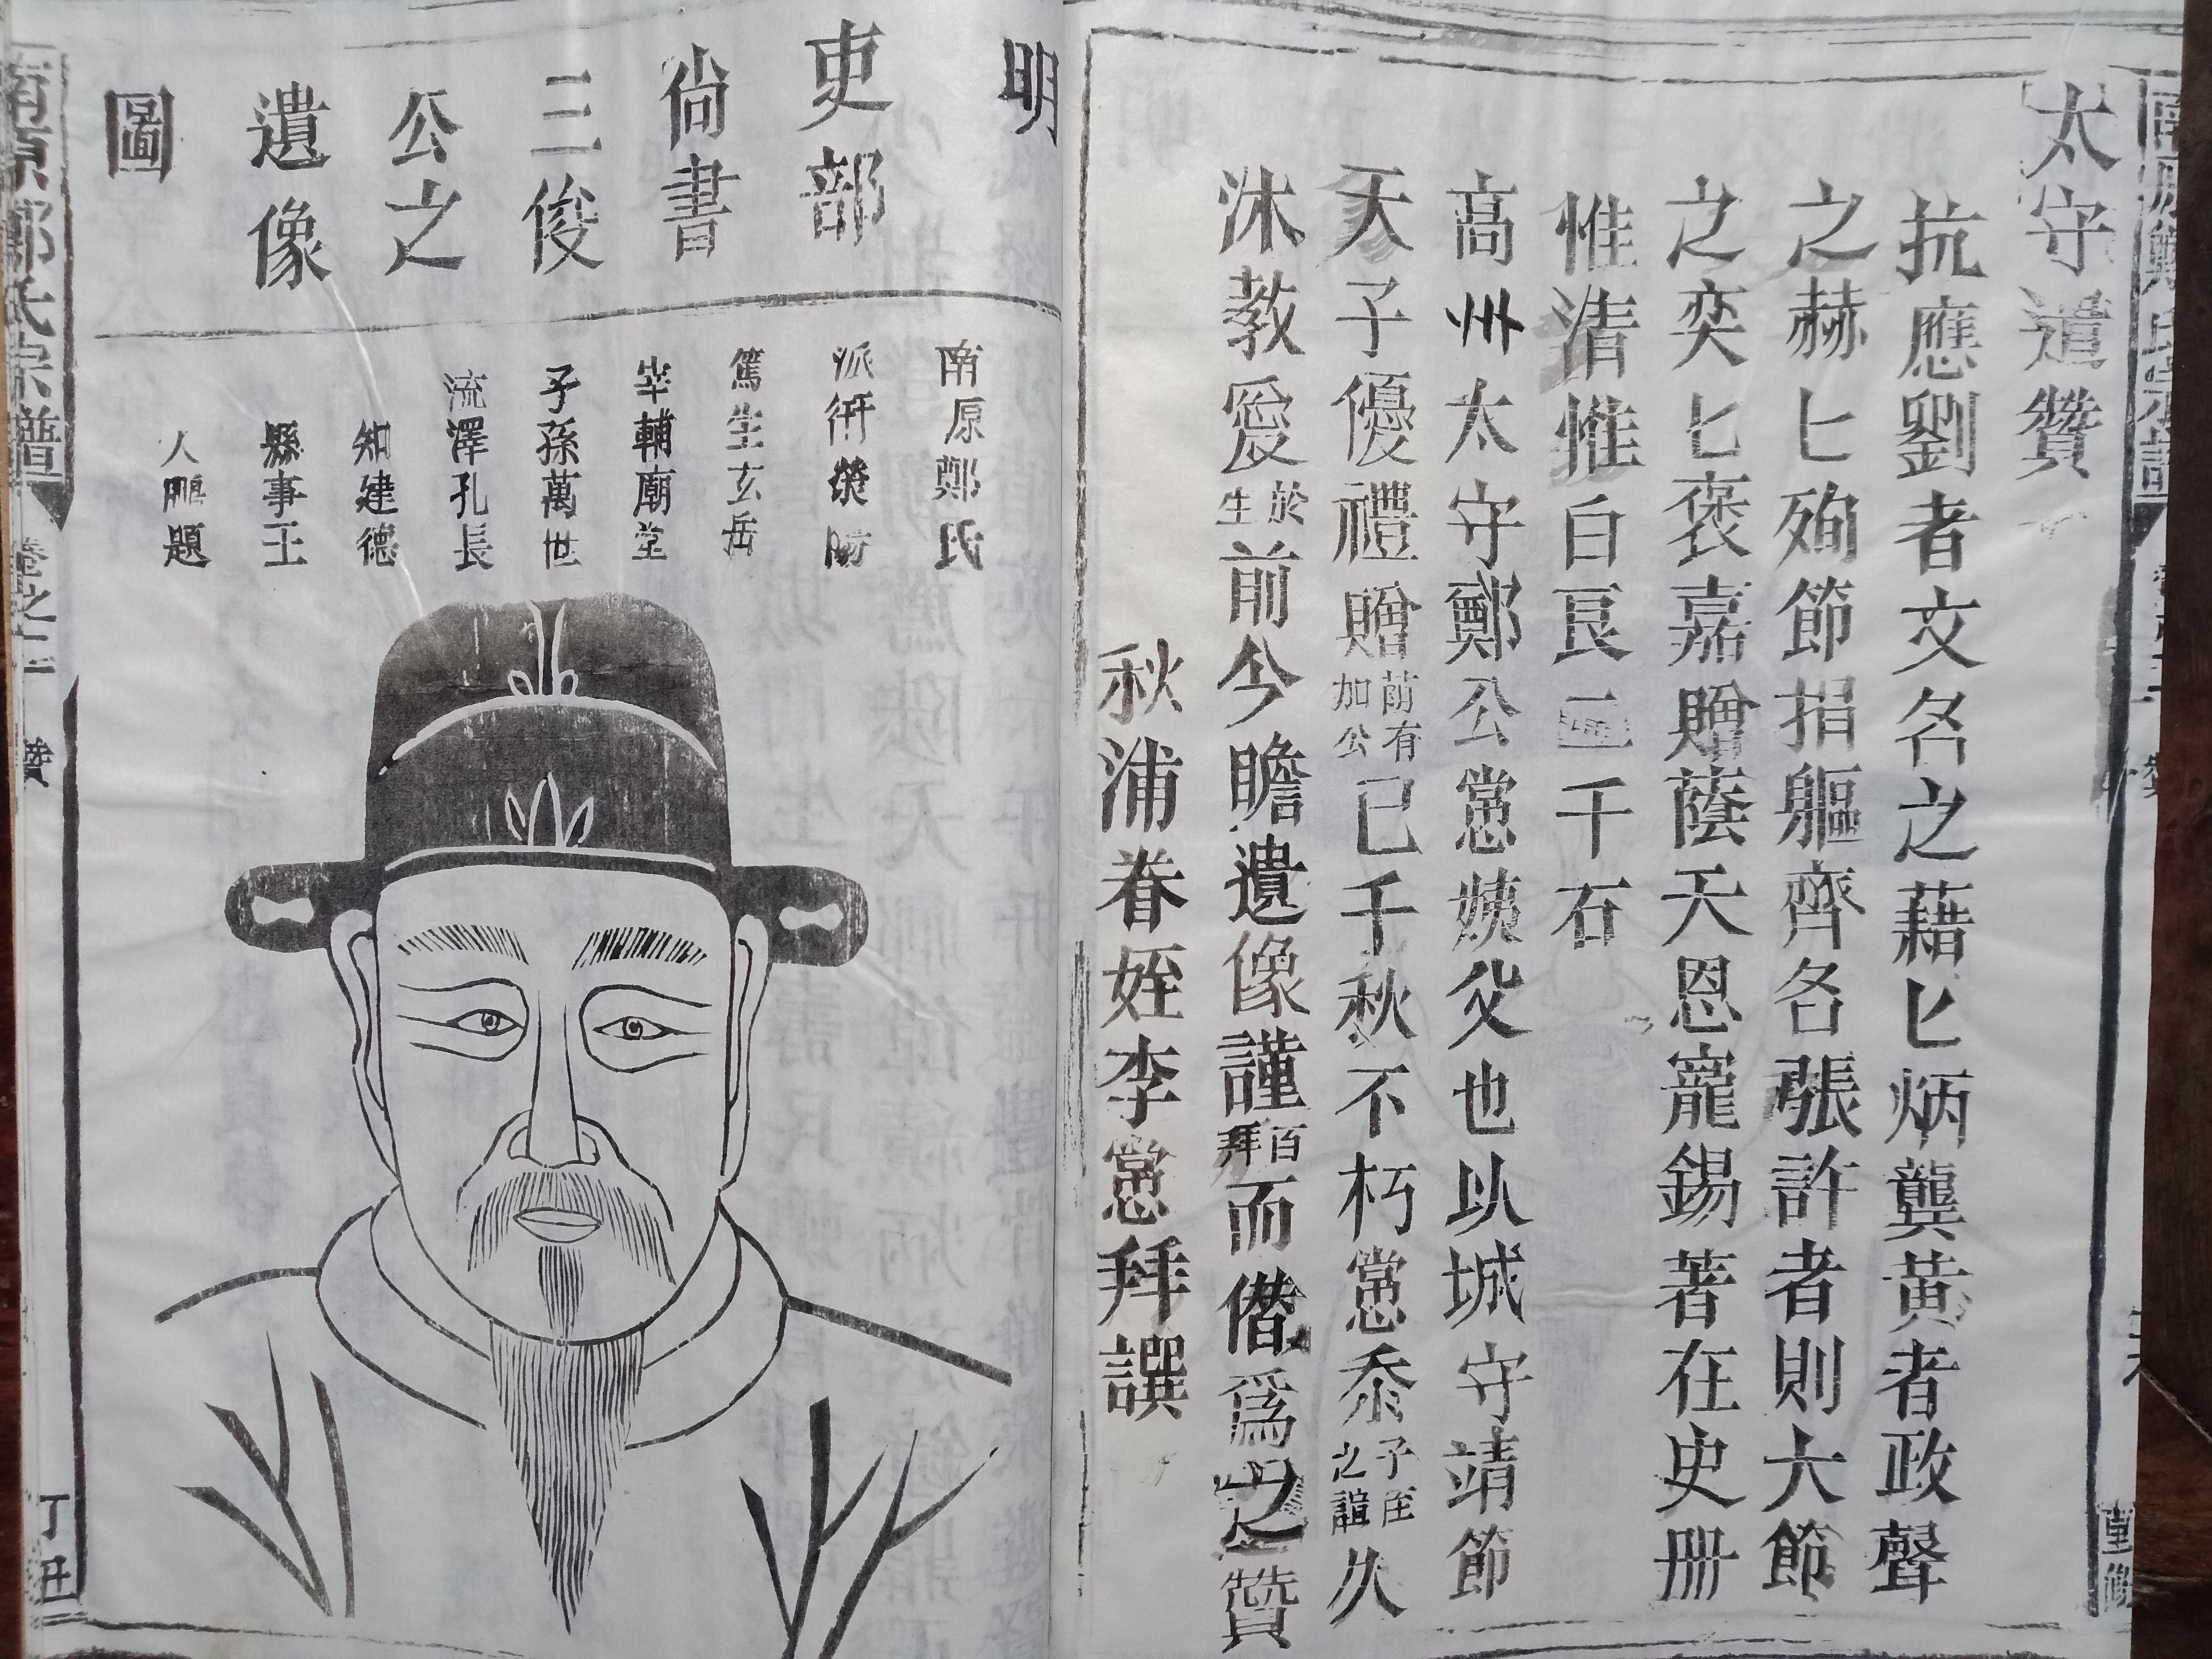 太守遺贊
抗應劉者文名之藉匕炳龔黃者政聲
之赫匕殉節捐軀齊名張許者則大節
之奕匕褒嘉贈蔭天恩寵錫著在史册
惟清惟白艮二千石
高州太守鄭公黨姨父也以城守靖節
天子優禮贈前有加公已千秋不朽黨忝子侄之誼久
沐教愛於生前今瞻遺像謹百拜而僭爲之贊
秋浦眷姪李黨拜譔
重修
明
吏部
尙書
三俊
公之
遺像
圖
南原鄭氏
派衍榮陽
篤生玄岳
宰輔廟堂
子孫萬世
流澤孔長
知建德
縣事王
人鵬題
南原鄭氏宗譜
卷之二
贊
丁丑